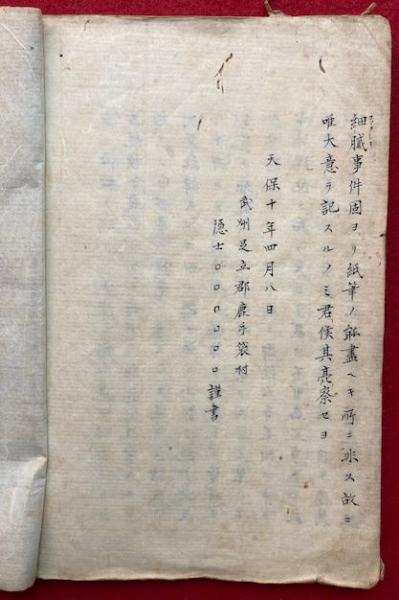 細膩事件固ヨリ紙筆ノ能盡ヘキ所ニ非ス故ニ
唯大意ヲ記スルノミ君侯其亮察セヨ
天保十年四月八日
武州足立郡鹿手袋村
隠士□□□□□□謹書